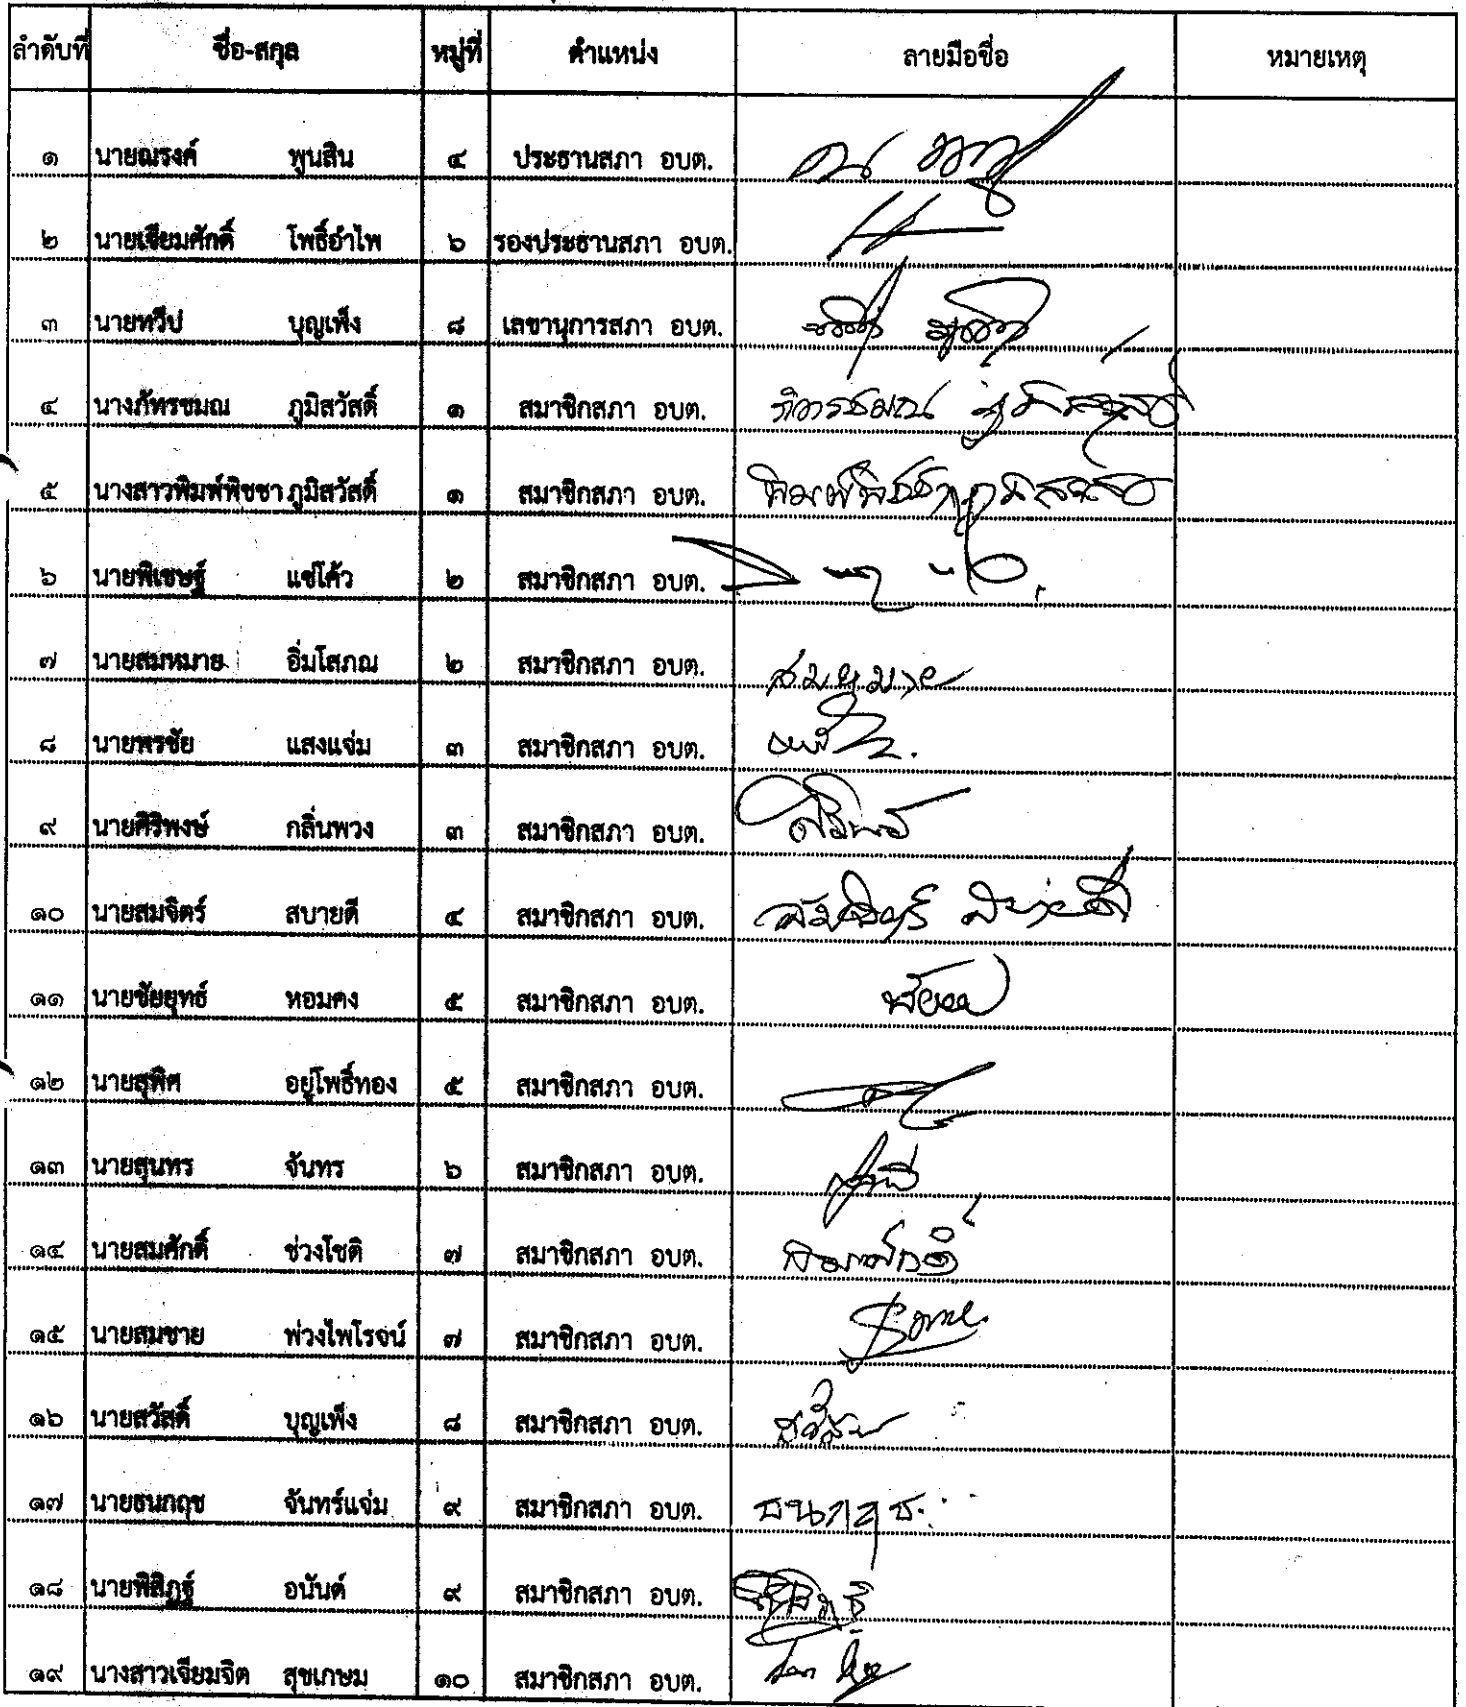 ลำดับที่ ชื่อ-สกุล หมู่ที่ ตำแหน่ง ลายมือชื่อ หมายเหตุ
๑ นายณรงค์ พูนสิน ๔ ประธานสภา อบต.
๒ นายเจียมศักดิ์ โพธิ์อำไพ ๖ รองประธานสภา อบต.
๓ นายทวีป บุญเพ็ง ๘ เลขานุการสภา อบต.
๔ นางภัทรชมณ ภูมิสวัสดิ์ ๑ สมาชิกสภา อบต. ภัทรชมณ ภูมิสวัสดิ์
๕ นางสาวพิมพ์พิชชา ภูมิสวัสดิ์ ๑ สมาชิกสภา อบต. พิมพ์พิชชา ภูมิสวัสดิ์
๖ นายพิเชษฐ์ แซ่โค้ว ๒ สมาชิกสภา อบต.
๗ นายสมหมาย อิ่มโสภณ ๒ สมาชิกสภา อบต. สมหมาย
๘ นายพรชัย แสงแจ่ม ๓ สมาชิกสภา อบต.
๙ นายศิริพงษ์ กลิ่นพวง ๓ สมาชิกสภา อบต.
๑๐ นายสมจิตร์ สบายดี ๔ สมาชิกสภา อบต. สมจิตร์ สบายดี
๑๑ นายชัยยุทธ์ หอมคง ๕ สมาชิกสภา อบต.
๑๒ นายสุพิศ อยู่โพธิ์ทอง ๕ สมาชิกสภา อบต.
๑๓ นายสุนทร จันทร ๖ สมาชิกสภา อบต.
๑๔ นายสมศักดิ์ ช่วงโชติ ๗ สมาชิกสภา อบต. สมศักดิ์
๑๕ นายสมชาย พ่วงไพโรจน์ ๗ สมาชิกสภา อบต.
๑๖ นายสวัสดิ์ บุญเพ็ง ๘ สมาชิกสภา อบต.
๑๗ นายธนกฤช จันทร์แจ่ม ๙ สมาชิกสภา อบต. ธนกฤช
๑๘ นายพิสิฏฐ์ อนันต์ ๙ สมาชิกสภา อบต.
๑๙ นางสาวเจียมจิต สุขเกษม ๑๐ สมาชิกสภา อบต.